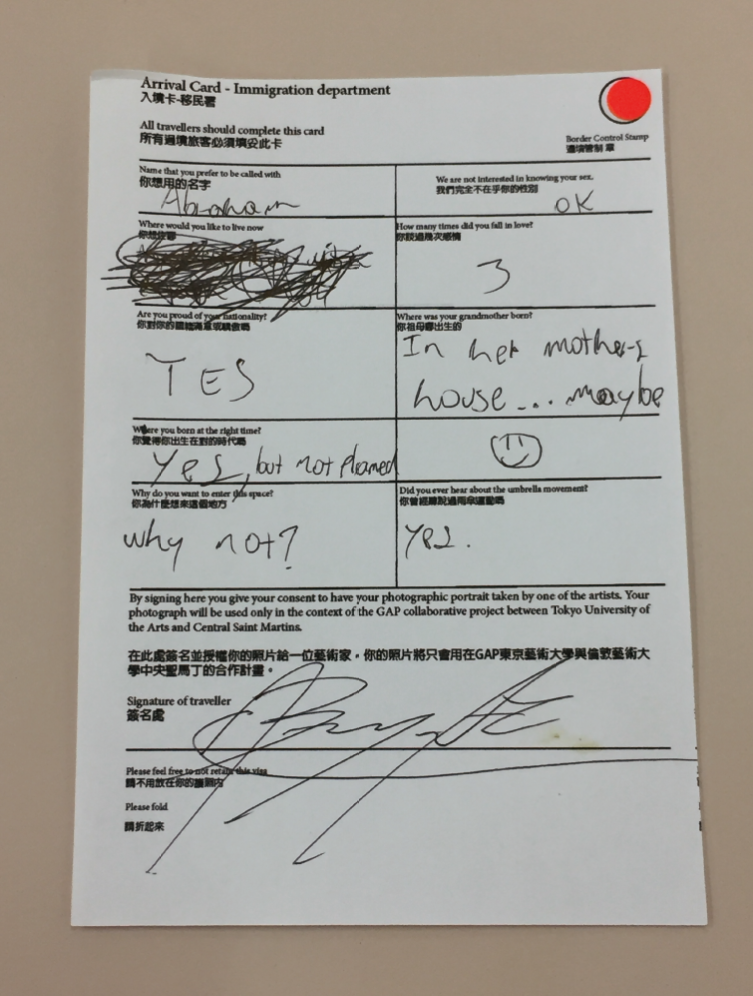 Arrival Card - Immigration department
入境卡-移民署
All travellers should complete this card
所有過境旅客必須填妥此卡
Border Control Stamp
邊境管制 章
Name that you prefer to be called with
你想用的名字
Abraham
We are not interested in knowing your sex.
我們完全不在乎你的性別
OK
Where would you like to live now
How many times did you fall in love?
你談過幾次感情
3
Are you proud of your nationality?
YES
Where was your grandmother born?
你祖母哪出生的
In her mother's
house... maybe
Where you born at the right time?
你覺得你出生在對的時代嗎
Yes, but not planned
Why do you want to enter this space?
你為什麼想來這個地方
why not?
Did you ever hear about the umbrella movement?
你曾經聽說過雨傘運動嗎
Yes.
By signing here you give your consent to have your photographic portrait taken by one of the artists. Your
photograph will be used only in the context of the GAP collaborative project between Tokyo University of
the Arts and Central Saint Martins.
在此處簽名並授權你的照片給一位藝術家。你的照片將只會用在GAP東京藝術大學與倫敦藝術大
學中央聖馬丁的合作計畫。
Signature of traveller
簽名處
Please feel free to not return this visa
請不用放在你的護照內
Please fold
請折起來